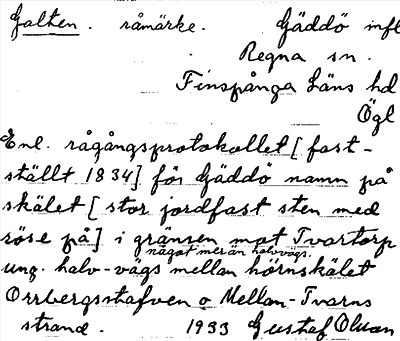 Galten. råmärke. Gäddö infl
Regna sn.
Finspånga Läns hd
Ögl
Enl. rågångsprotokollet [fast-
ställt 1834] för Gäddö namn på
skälet [stor jordfast sten med
röse på] i gränsen mot Tvartorp
något mer än halvvägs.
ung. halv-vägs mellan hörnskälet
Orrbergsstafven o Mellan-Tvarns
strand. 1933 Gustaf Olsson